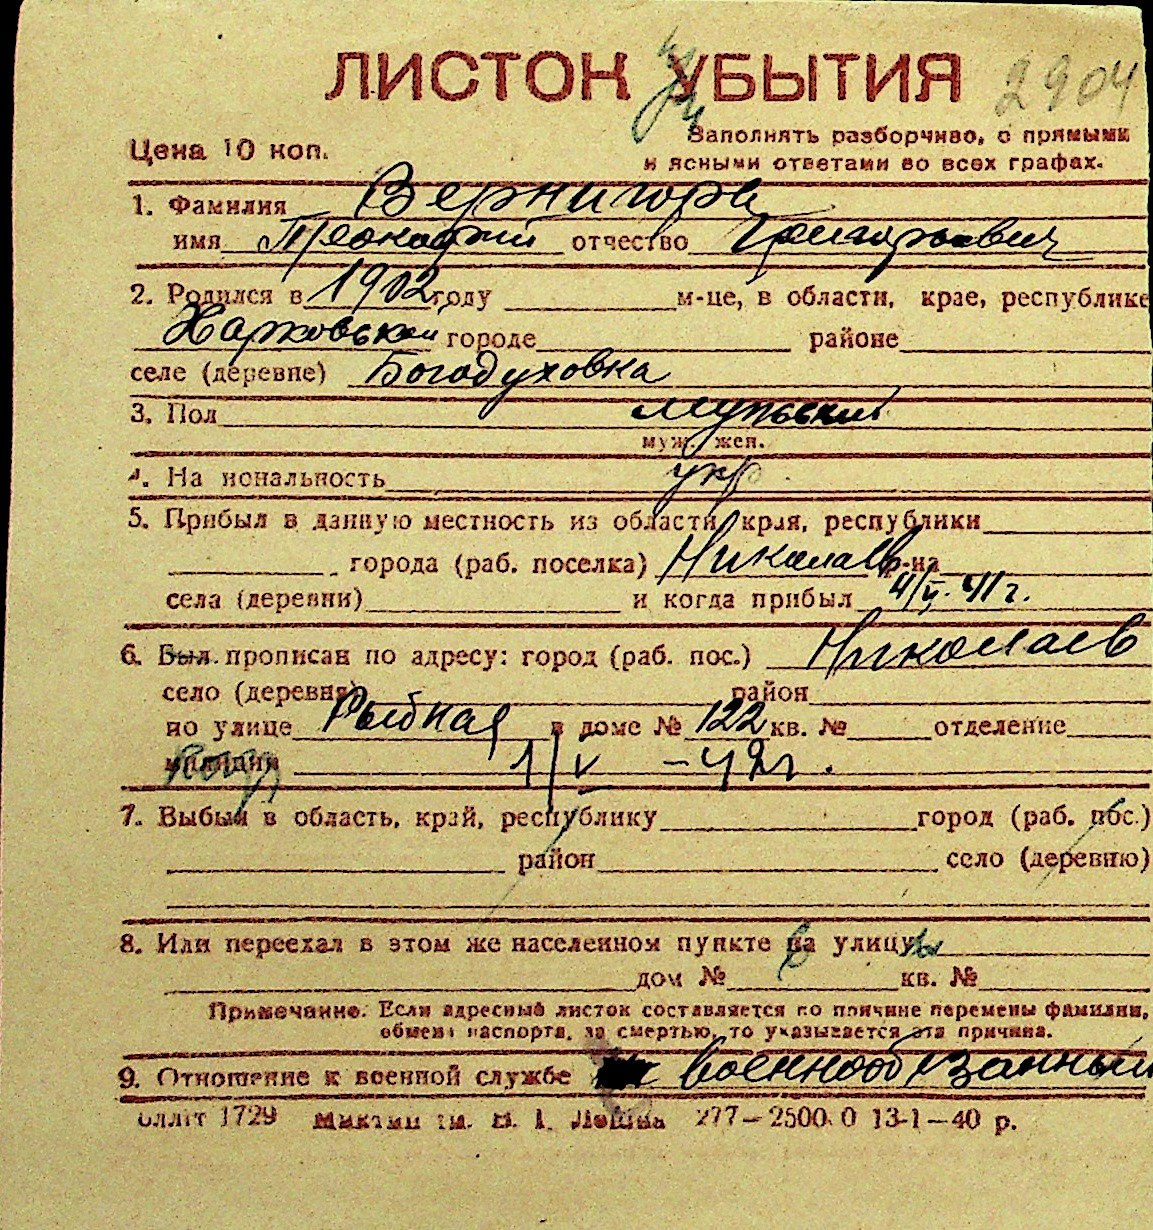 ЛИСТОК УБЫТИЯ 2904
Цена 10 коп.
Заполнять разборчиво, с прямыми
и ясными ответами во всех графах.
1. Фамилия Вернигора
имя отчество Григорьевич
2. Родился в 1902 году м-це, в области, крае, республике
Харковской городе районе
селе (деревне) Богодуховка
3. Пол мужский
муж. жен.
4. На иональность укр
5. Прибыл в данную местность из области, края, республики
города (раб. поселка) Николаев р-на
села (деревни) и когда прибыл 41 г.
6. Был прописан по адресу: город (раб. пос.) Николаев
село (деревня) район
по улице Рыбная в доме № 122 кв. № отделение
милиции 1/V - 42 г.
7. Выбыл в область, край, республику город (раб. пос.)
район село (деревню)
8. Или переехал в этом же населенном пункте на улицу
дом № кв. №
Примечание. Если адресный листок составляется по причине перемены фамилии,
обмена паспорта, за смертью, то указывается эта причина.
9. Отношение к военной службе военнообязанный
1729 277—2500.0 13-1—40 р.